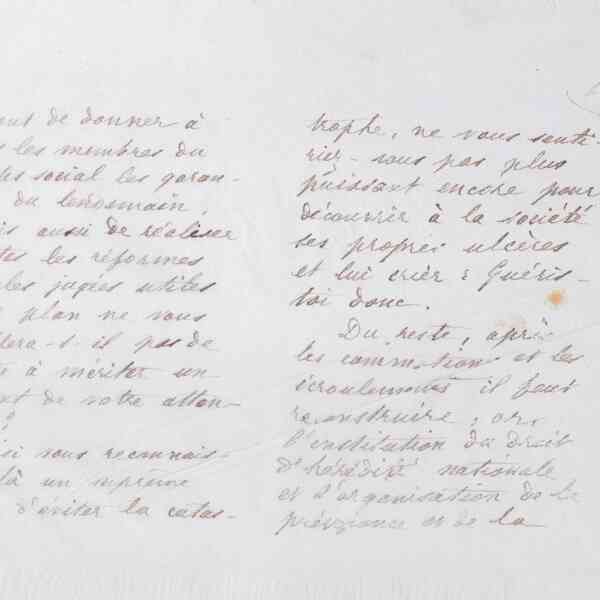 de donner à
les membres du
social les garan-
du lendemain,
aussi de réaliser
les réformes
les juges utiles
plan ne vous
-t-il pas de
à mériter un
de votre atten-
?
si vous reconnais-
là un suprême
d'éviter la catas-
trophe, ne vous senti-
riez-vous pas plus
puissant encore pour
découvrir à la société
ses propres ulcères
et lui crier : Guéris-
toi donc.
Du reste, après
les commotions et les
écroulements il faut
reconstruire, or,
l'institution du Droit
d'hérédité nationale
et l'organisation de la
prévoyance et de la